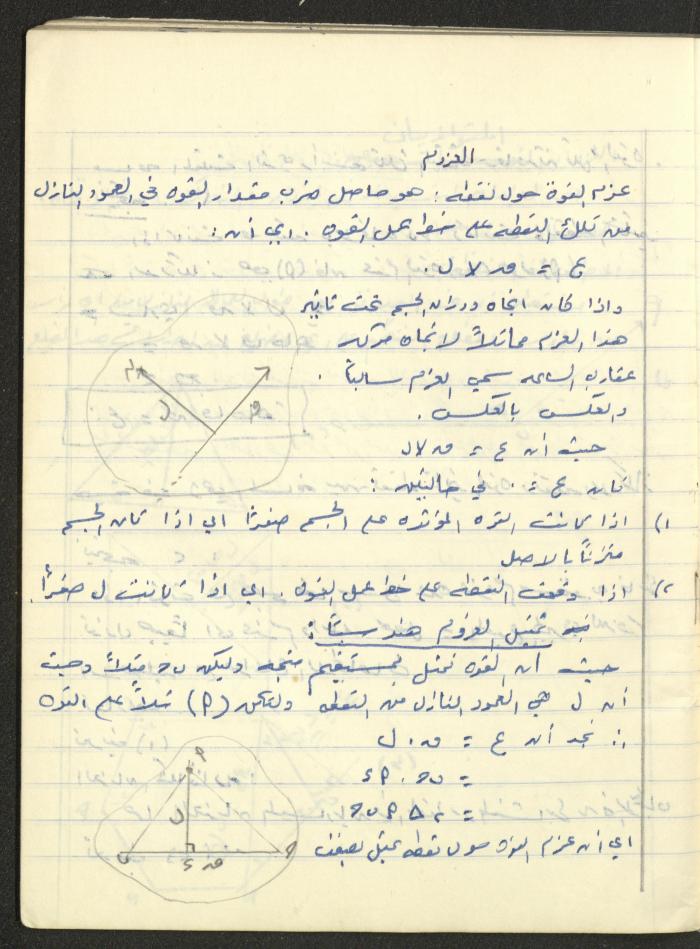 العزوم
عزم القوة حول نقطه : هو حاصل ضرب مقدار القوه في العمود النازل
من تلك النقطه على خط عمل القوه . اي أن :
ع = ق × ل .
واذا كان اتجاه دوران الجسم تحت تأثير
هذا العزم مماثلاً لاتجاه حركة
عقارب الساعه سمي العزم سالباً .
والعكس بالعكس .
حيث أن ع = ق × ل
فان ع = ٠ في حالتين :
١) اذا كانت القوه المؤثره على الجسم صفرًا اي اذا كان الجسم
متزنًا بالاصل
٢) اذا وقعت النقطه على خط عمل القوه . اي اذا كانت ل صفراً .
تمثيل العزوم هندسياً :
حيث أن القوه تمثل بمستقيم متجه وليكن ب ح مثلاً وحيث
أن ل هي العمود النازل من النقطه ولتكن (م) مثلاً على القوه
∴ نجد أن ع = ق . ل
= ب ح . م د
= ٢ ∆ م ب ح
اي أن عزم القوه حول نقطه يمثل بضعف
ل
م
ل
ب
د
ق
ح